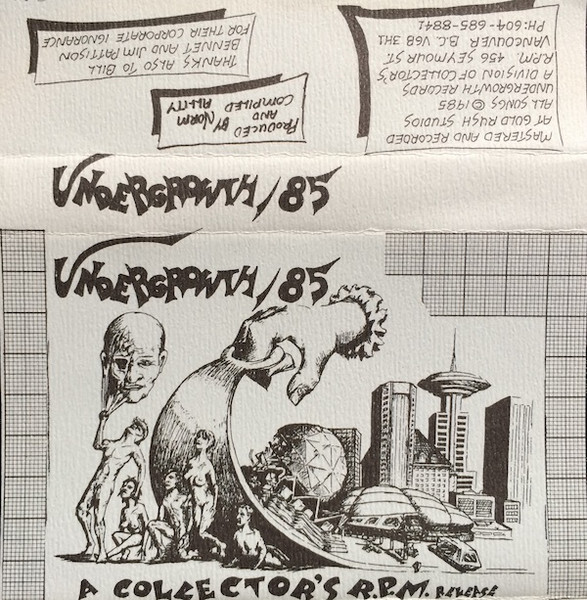 THANKS ALSO TO BILL
BENNET AND JIM PATTISON
FOR THEIR CORPORATE IGNORANCE
PRODUCED BY NORM
AND
COMPILED ALLITY
MASTERED AND RECORDED
AT GOLD RUSH STUDIOS
ALL SONGS © 1985
UNDERGROWTH RECORDS
A DIVISION OF COLLECTOR'S
R.P.M. 456 SEYMOUR ST.
VANCOUVER B.C. V6B 3H1
PH: 604-685-8841
UNDERGROWTH/85
UNDERGROWTH/85
A COLLECTOR'S R.P.M. RELEASE